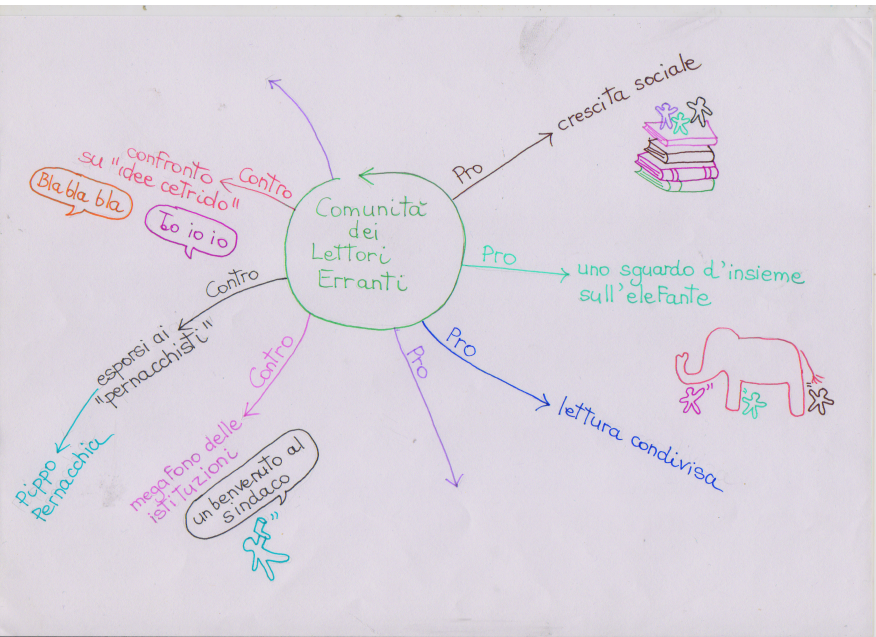 Comunità
dei
Lettori
Erranti
Pro
crescita sociale
Pro
uno sguardo d'insieme
sull'elefante
Pro
lettura condivisa
Pro
Contro
confronto
su "idee cetrido"
Bla bla bla
Io io io
Contro
esporsi ai
"pernacchisti"
Pippo
Pernacchia
Contro
megafono delle
istituzioni
un benvenuto al
sindaco